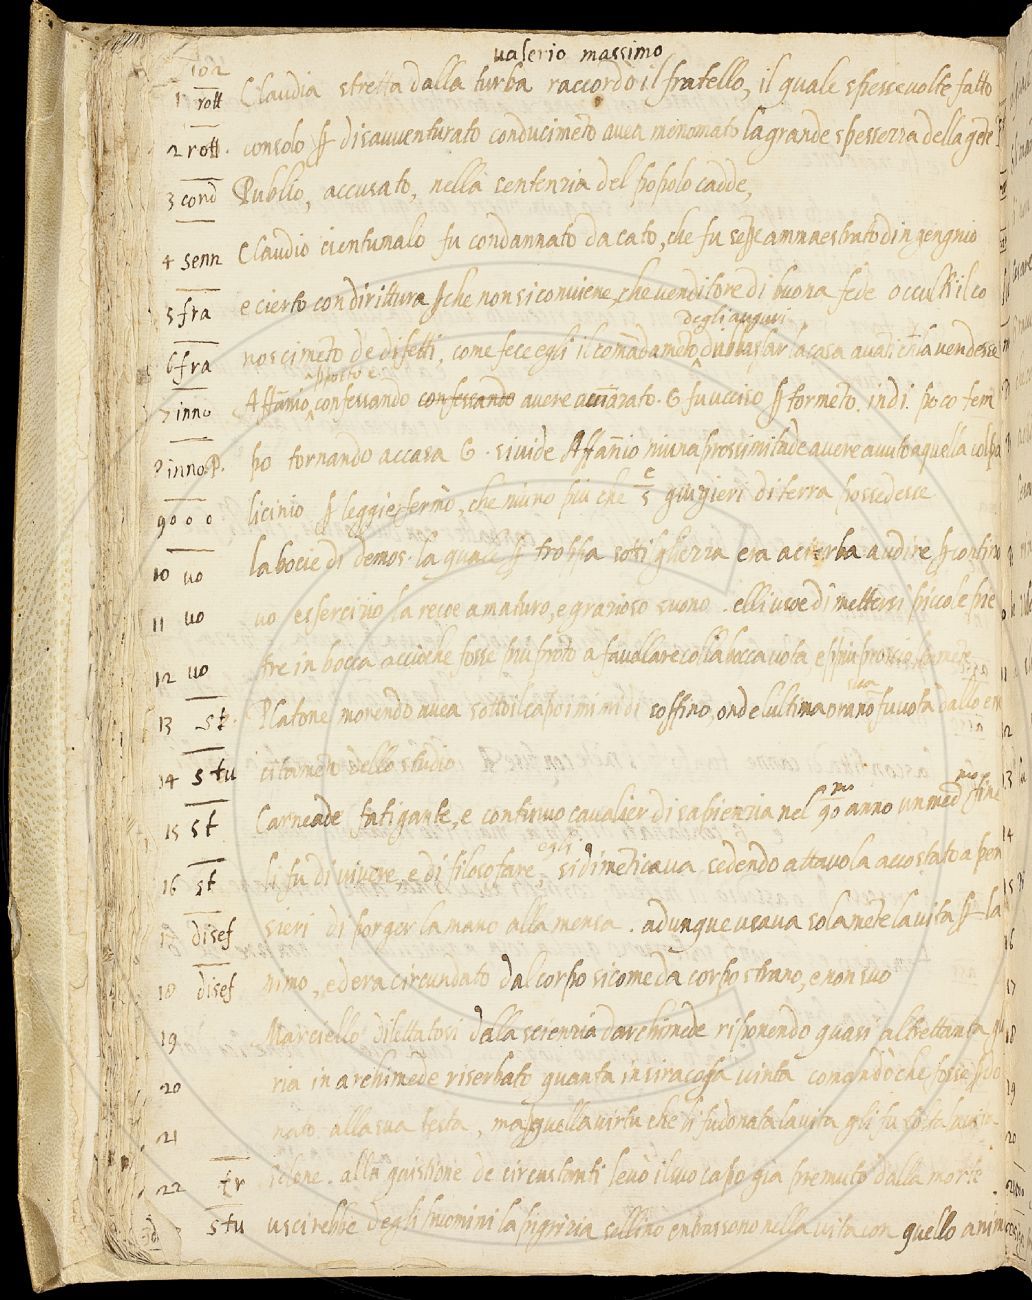 valerio massimo
102
1 rott Claudia stretta dalla turba raccordò il fratello, il quale spesse volte fatto
2 rott. consolo disavventurato conducimeto avea menomato la grande spessezza della gete
3 cond Publio, accusato, nella sentenzia del popolo cadde,
4 senn Claudio cientunalo fu condannato da cato, che fu amnaestrato d'ingengnio
5 fra e cierto con dirittura che non si conviene, che venditore di buona fede occulti il co
degli auguri
6 fra noscimeto de difetti, come fece egli il comādameto casa avāti ch la vendesse
7 inno Affānio confessando confessando avere 6 fu ucciso tormeto. indi. poco tem
8 inno.P. po tornando accasa 6. si vide Affānio niuna prossimitade avere avuto a quella colpa
9 o o o licinio leggie fermò, che niuno più che 5 giugieri di terra possedesse
10 uo la bocie di demos. la quale troppa sottigliezza era acierba audire contino
11 uo vo essercitio la recoe a maturo, e grazioso suono. elli usoe di mettersi piccole pie
12 uo tre in bocca acciò che fosse più prōto a favellare colla bocca vota e
sua
13 st. Platone morendo avea sotto il capo i mimi di soffino, onde l'ultima ora nō fu vota dallo en
14 stu citameto dello studio
mo
15 st Carneade fatigante, e continuo cavalier di sapienzia nel 90 anno un med fine
egli
16 st li fu di vivere, e di filosofare, si dimeticava sedendo attavola accostato a pen
17 disef sieri di porger la mano alla mensa. adunque usava solamēte la vita la
18 disef nimo, ed era circundato dal corpo sicome da corpo strano, e non suo
19 Marciello dilettatosi dalla scienzia d'archimede riponendo quasi altrettanta
20 ria in archimede riserbato quanta in siracosa vinta comādò che fosse
21 nato alla sua testa, ma quella virtu che li fu donata la vita gli fu tolta
22 fr sclone. alla quistione de circustanti levò il suo capo gia premuto dalla morte
stu uscirebbe degli huomini la pigrizia sellino entrassono nella vita con quello anim